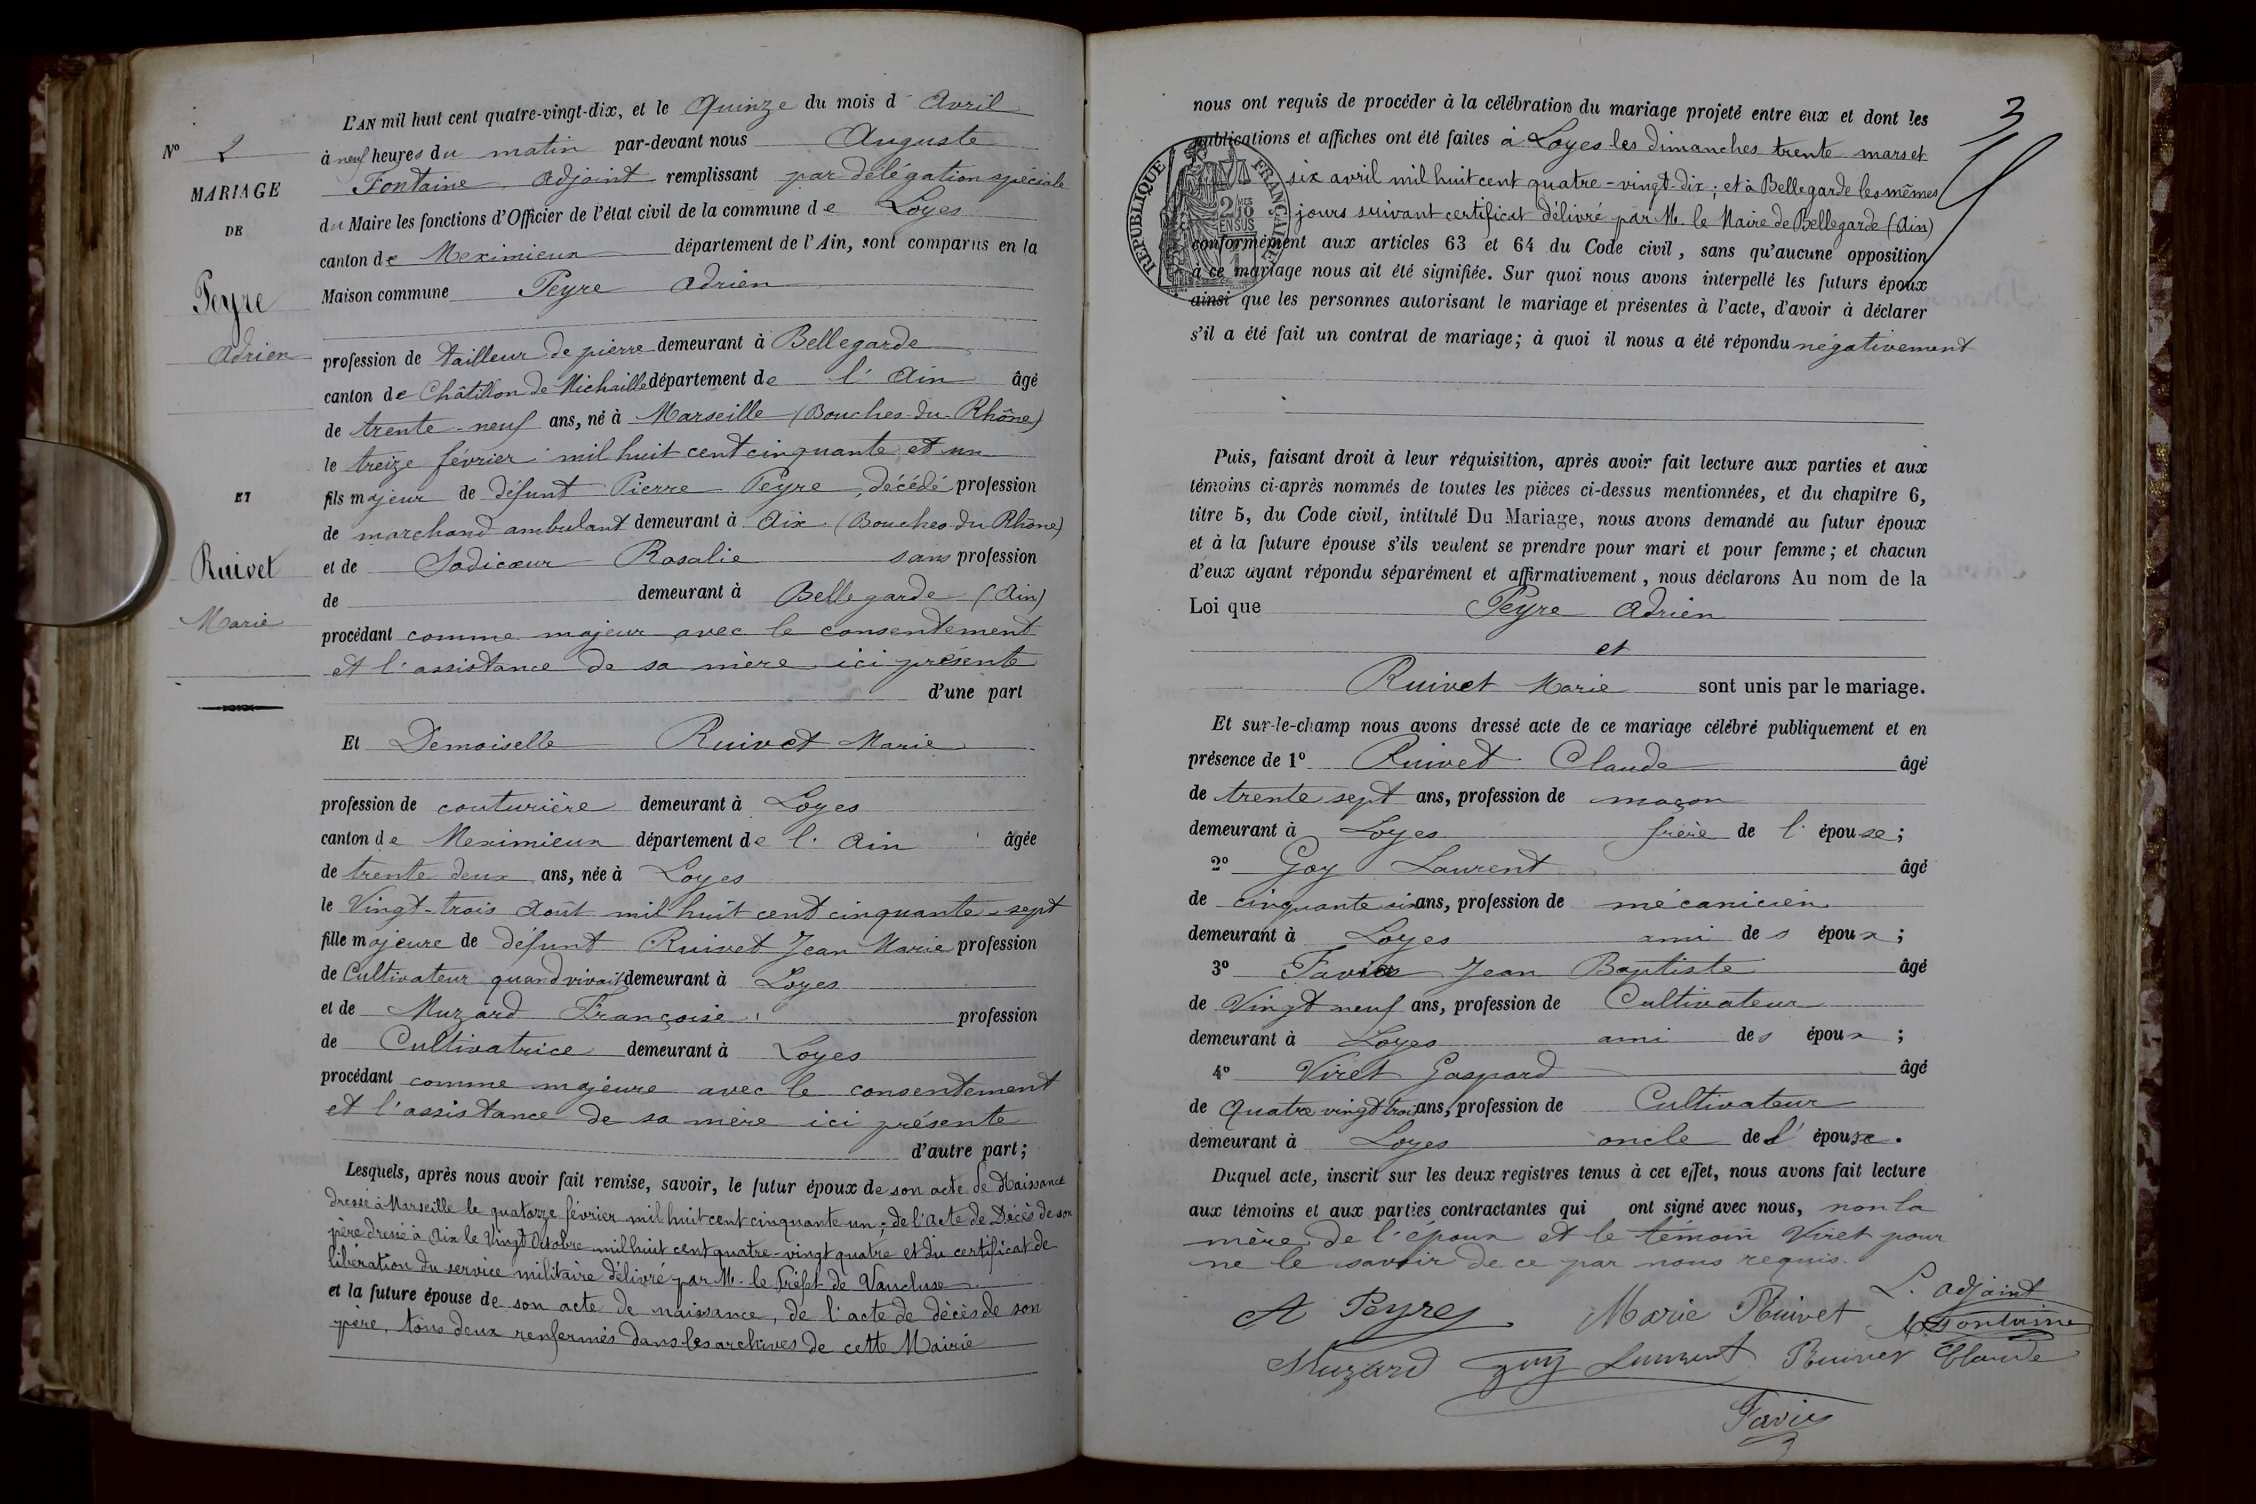 Nº 2
MARIAGE
DE
Peyre
Adrien
ET
Ruivet
Marie
L'AN mil huit cent quatre-vingt-dix, et le Quinze du mois d' Avril
à neuf heures du matin par-devant nous Auguste
Fontaine Adjoint remplissant par délégation spéciale
du Maire les fonctions d'Officier de l'état civil de la commune de Loyes
canton de Meximieux département de l'Ain, sont comparus en la
Maison commune Peyre Adrien
profession de tailleur de pierre demeurant à Bellegarde
canton de Châtillon de Michaille département de l'Ain âgé
de trente-neuf ans, né à Marseille (Bouches-du-Rhône)
le treize février mil huit cent cinquante et un
fils majeur de défunt Pierre Peyre, décédé profession
de marchand ambulant demeurant à Aix (Bouches du Rhône)
et de Sadicœur Rosalie sans profession
de demeurant à Bellegarde (Ain)
procédant comme majeur avec le consentement
et l'assistance de sa mère ici présente
d'une part
Et Demoiselle Ruivet Marie
profession de couturière demeurant à Loyes
canton de Meximieux département de l'Ain âgée
de trente deux ans, née à Loyes
le Vingt-trois Août mil huit cent cinquante-sept
fille majeure de défunt Ruivet Jean Marie profession
de Cultivateur quand vivait demeurant à Loyes
et de Muzard Françoise profession
de Cultivatrice demeurant à Loyes
procédant comme majeure avec le consentement
et l'assistance de sa mère ici présente
d'autre part;
Lesquels, après nous avoir fait remise, savoir, le futur époux de son acte de Naissance
dressé à Marseille le quatorze février mil huit cent cinquante un; de l'acte de Décès de son
père dressé à Aix le Vingt Octobre mil huit cent quatre-vingt quatre et du certificat de
libération du service militaire délivré par M. le Préfet de Vaucluse
et la future épouse de son acte de naissance, de l'acte de décès de son
père, tous deux renfermés dans les archives de cette Mairie
3
nous ont requis de procéder à la célébration du mariage projeté entre eux et dont les
publications et affiches ont été faites à Loyes les dimanches trente mars et
six avril mil huit cent quatre-vingt-dix; et à Bellegarde les mêmes
jours suivant certificat délivré par M. le Maire de Bellegarde (Ain)
RÉPUBLIQUE FRANÇAISE
conformément aux articles 63 et 64 du Code civil, sans qu'aucune opposition
à ce mariage nous ait été signifiée. Sur quoi nous avons interpellé les futurs époux
ainsi que les personnes autorisant le mariage et présentes à l'acte, d'avoir à déclarer
s'il a été fait un contrat de mariage; à quoi il nous a été répondu négativement
Puis, faisant droit à leur réquisition, après avoir fait lecture aux parties et aux
témoins ci-après nommés de toutes les pièces ci-dessus mentionnées, et du chapitre 6,
titre 5, du Code civil, intitulé Du Mariage, nous avons demandé au futur époux
et à la future épouse s'ils veulent se prendre pour mari et pour femme; et chacun
d'eux ayant répondu séparément et affirmativement, nous déclarons Au nom de la
Loi que Peyre Adrien
et
Ruivet Marie sont unis par le mariage.
Et sur-le-champ nous avons dressé acte de ce mariage célébré publiquement et en
présence de 1º Ruivet Claude âgé
de trente sept ans, profession de maçon
demeurant à Loyes frère de l'épouse;
2º Goy Laurent âgé
de cinquante six ans, profession de mécanicien
demeurant à Loyes ami des époux;
3º Favier Jean Baptiste âgé
de Vingt neuf ans, profession de Cultivateur
demeurant à Loyes ami des époux;
4º Viret Gaspard âgé
de Quatre vingt trois ans, profession de Cultivateur
demeurant à Loyes oncle de l'épouse.
Duquel acte, inscrit sur les deux registres tenus à cet effet, nous avons fait lecture
aux témoins et aux parties contractantes qui ont signé avec nous, non la
mère de l'époux et le témoin Viret pour
ne le savoir de ce par nous requis.
L'adjoint
A Peyre Marie Ruivet A. Fontaine
Muzard Goy Laurent Ruivet Claude
Favier